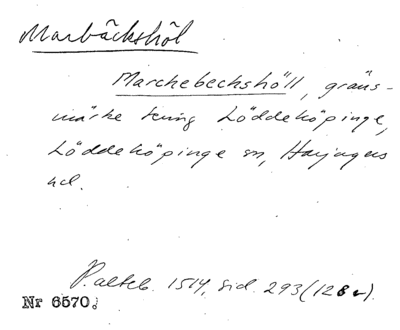 Marbäckshöl
Marchebeckshöll, gräns-
märke kring Löddeköpinge,
Löddeköpinge sn, Harjagers
hd.
Palteb. 1514, sid. 293 (128 v).
Nr 6570.